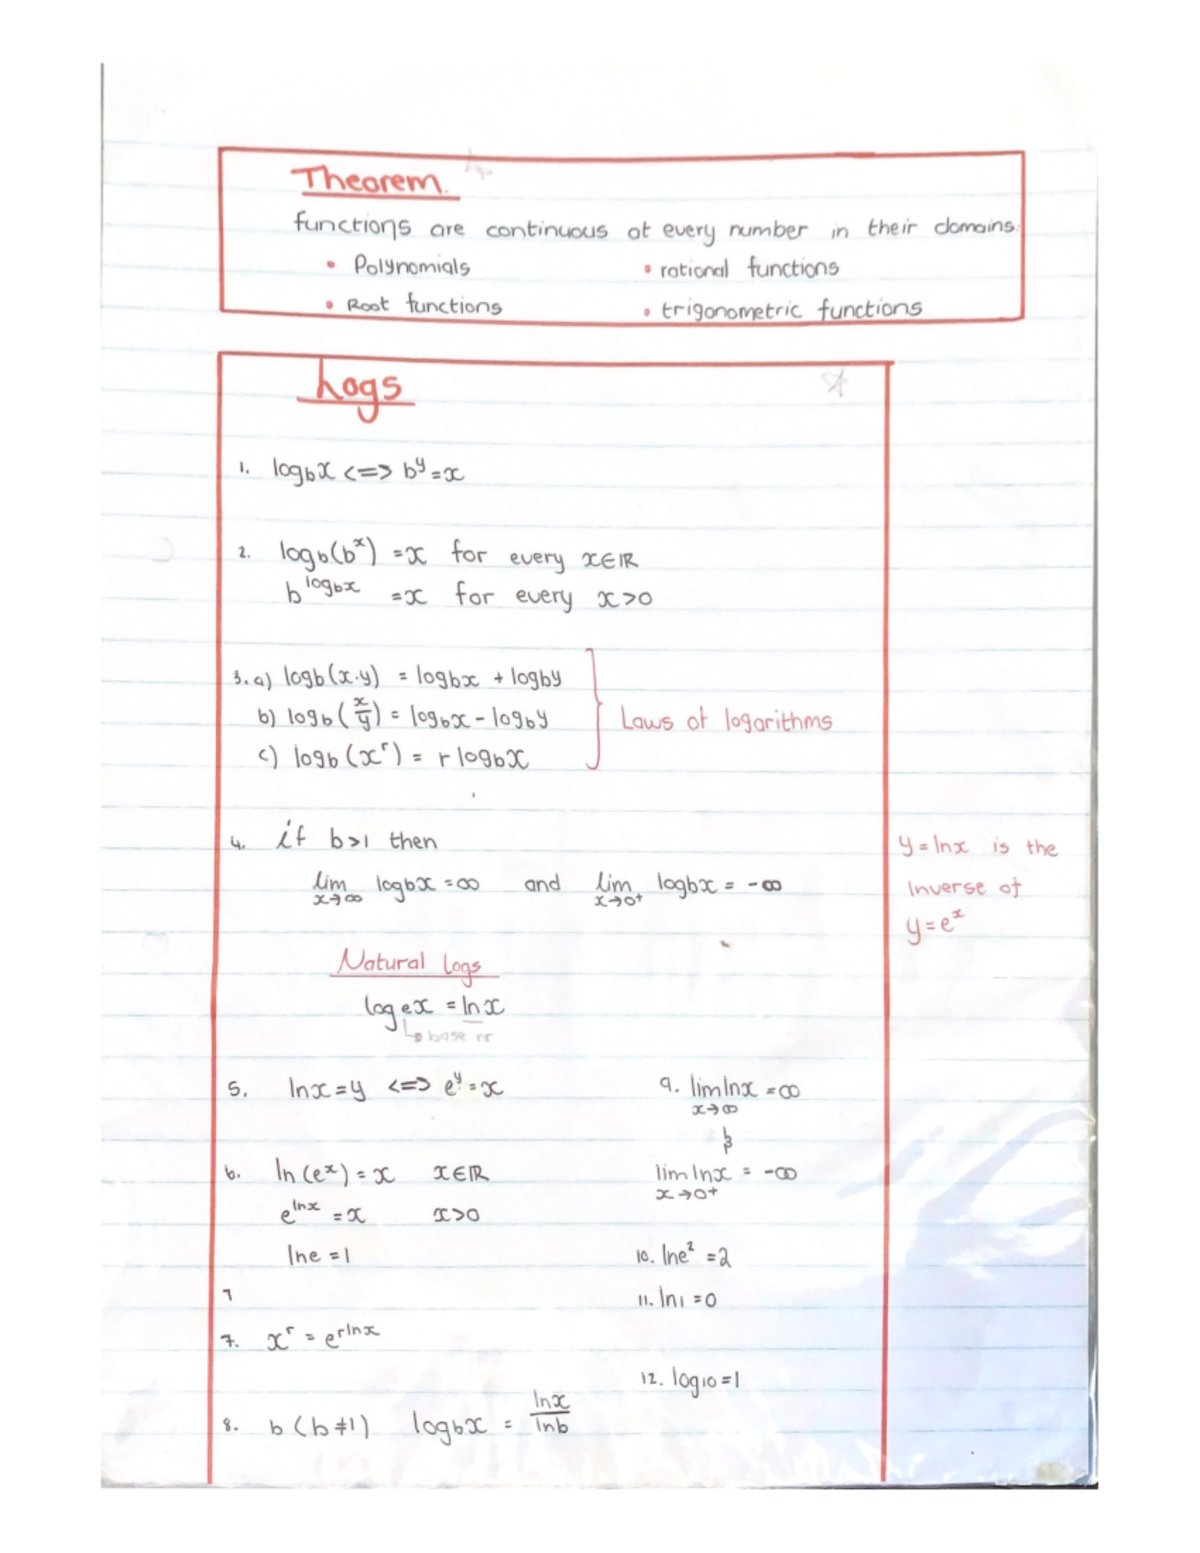 Theorem.
functions are continuous at every number in their domains.
• Polynomials • rational functions
• Root functions • trigonometric functions
Logs
1. log_b x <=> b^y = x
2. log_b(b^x) = x for every x∈ℝ
b^(log_b x) = x for every x>0
3. a) log_b(x·y) = log_b x + log_b y
b) log_b(x/y) = log_b x - log_b y
c) log_b(x^r) = r log_b x
Laws of logarithms
4. if b>1 then
lim x→∞ log_b x = ∞ and lim x→0⁺ log_b x = -∞
y = lnx is the
Inverse of
y = e^x
Natural Logs
log_e x = lnx
↳ base nr
5. lnx = y <=> e^y = x
6. ln(e^x) = x x∈ℝ
e^(lnx) = x x>0
lne = 1
7
7. x^r = e^(rlnx)
8. b (b≠1) log_b x = lnx/lnb
9. lim x→∞ lnx = ∞
&
lim x→0⁺ lnx = -∞
10. lne² = 2
11. ln1 = 0
12. log10 = 1